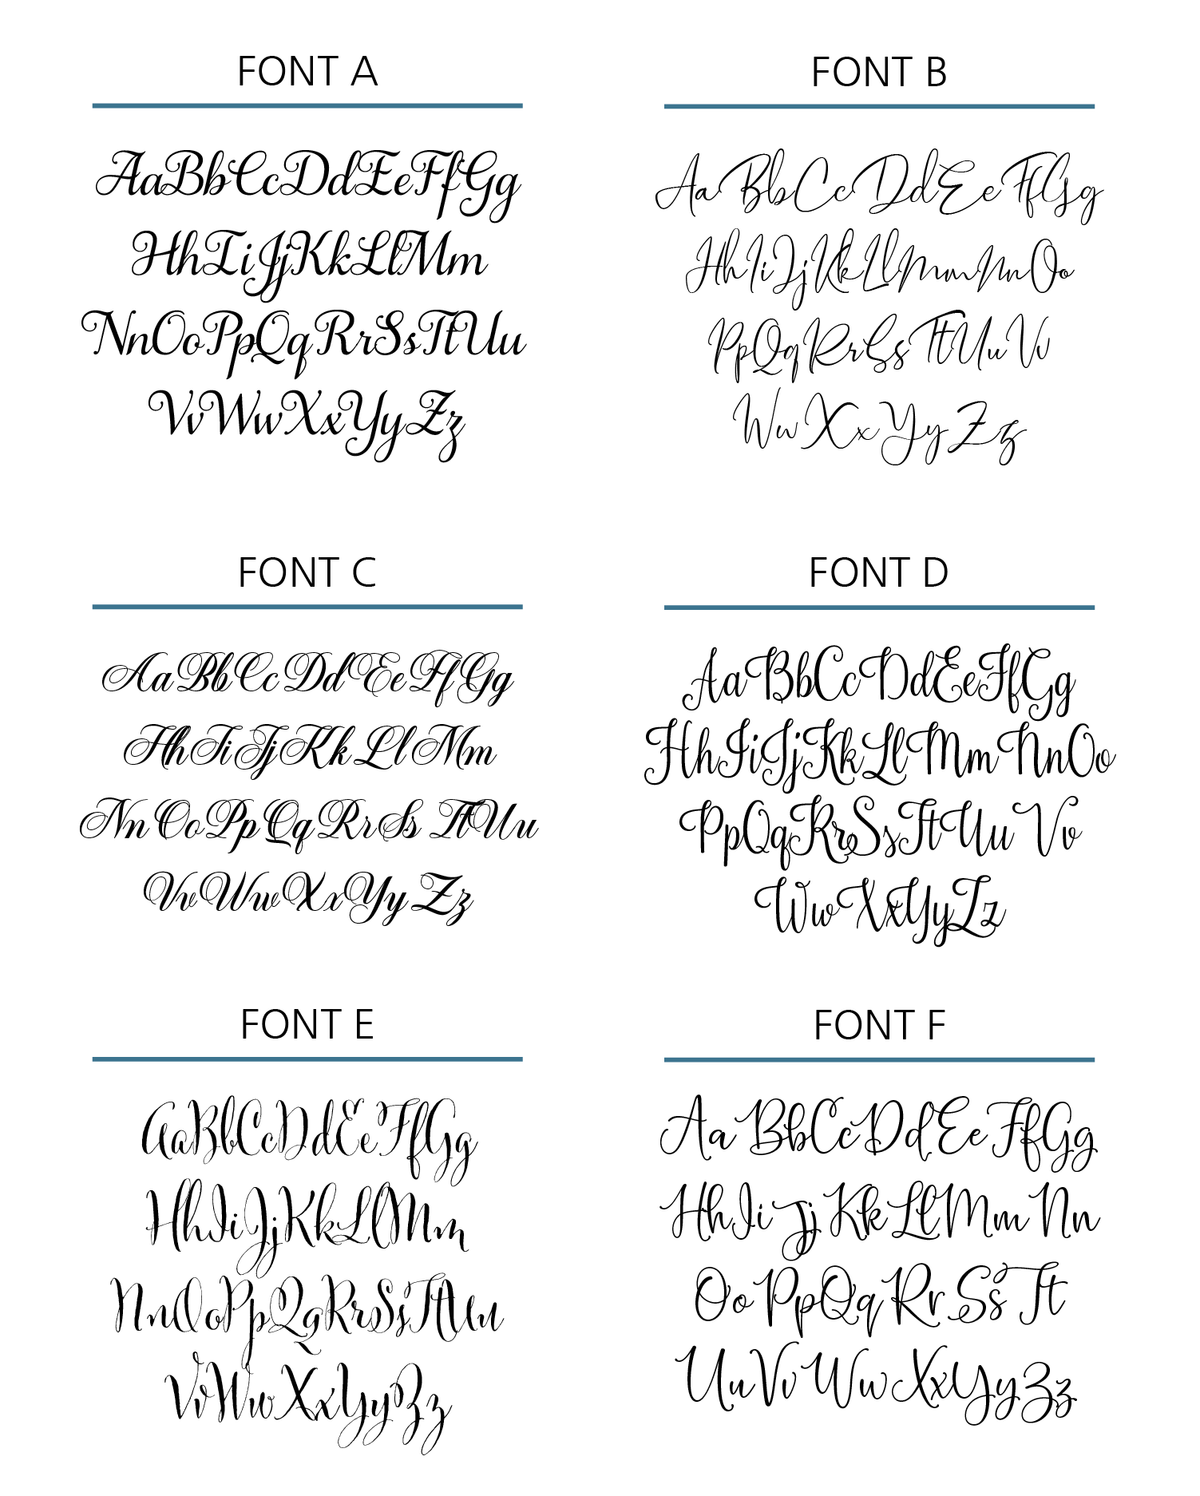 FONT A
AaBbCcDdEeFfGg
HhIiJjKkLlMm
NnOoPpQqRrSsTtUu
VvWwXxYyZz
FONT B
AaBbCcDdEeFfGg
HhIiJjKkLlMmNnOo
PpQqRrSsTtUuVv
WwXxYyZz
FONT C
AaBbCcDdEeFfGg
HhIiJjKkLlMm
NnOoPpQqRrSsTtUu
VvWwXxYyZz
FONT D
AaBbCcDdEeFfGg
HhIiJjKkLlMmNnOo
PpQqRrSsTtUuVv
WwXxYyZz
FONT E
AaBbCcDdEeFfGg
HhIiJjKkLlMm
NnOoPpQqRrSsTtUu
VvWwXxYyZz
FONT F
AaBbCcDdEeFfGg
HhIiJjKkLlMmNn
OoPpQqRrSsTt
UuVvWwXxYyZz